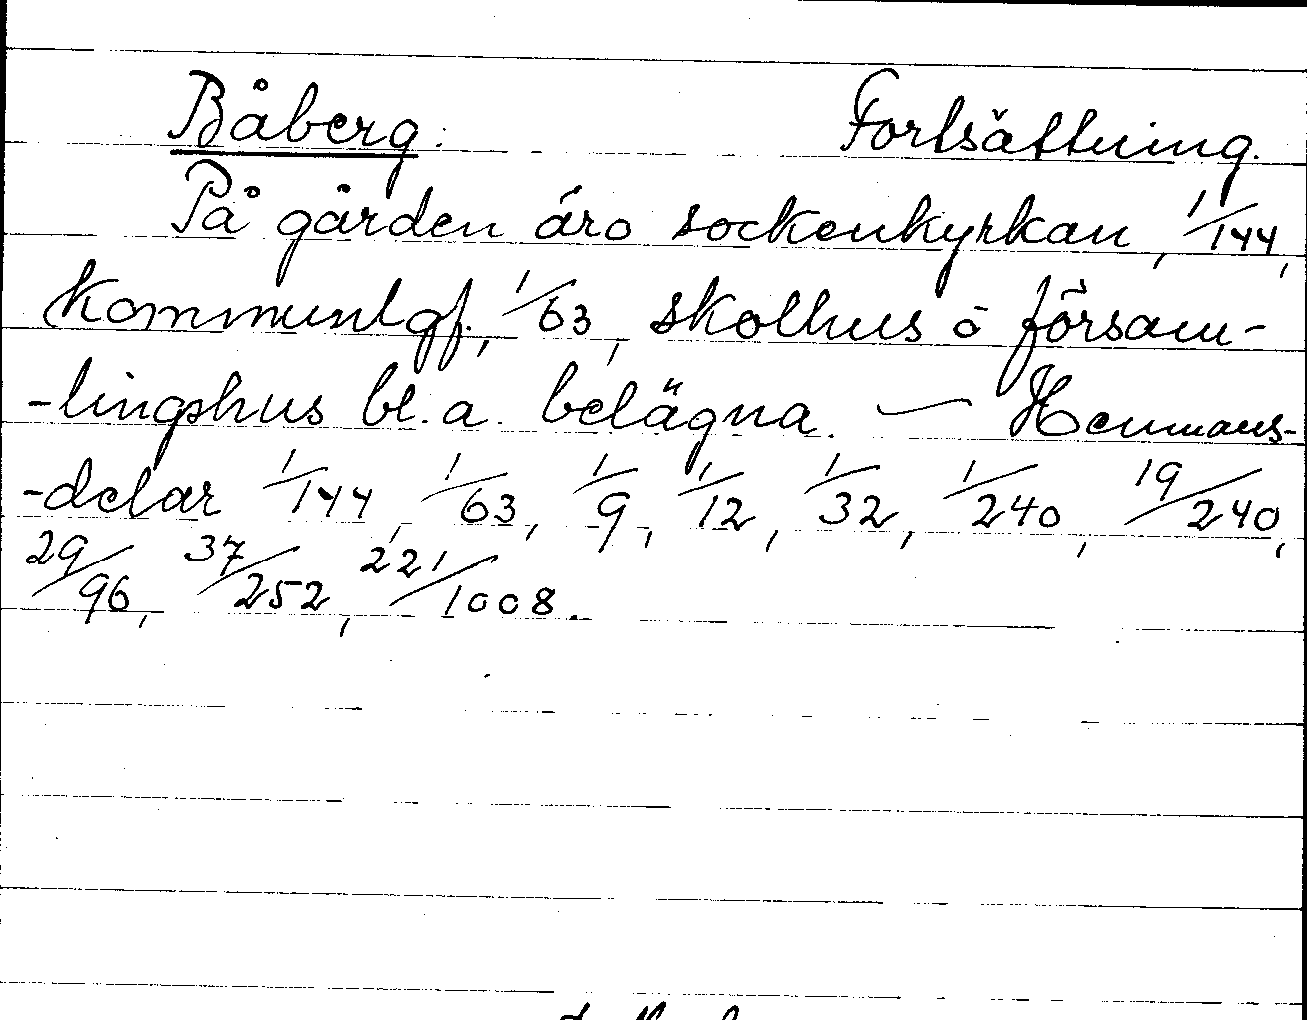 Båberg. Fortsättning.
På gården äro sockenkyrkan, 1/144,
Kommunlgf., 1/63, skolhus o försam-
-lingshus bl. a. belägna. — Hemmans-
-delar 1/144, 1/63, 1/9, 1/12, 1/32, 1/240, 19/240,
29/96, 37/252, 221/1008.